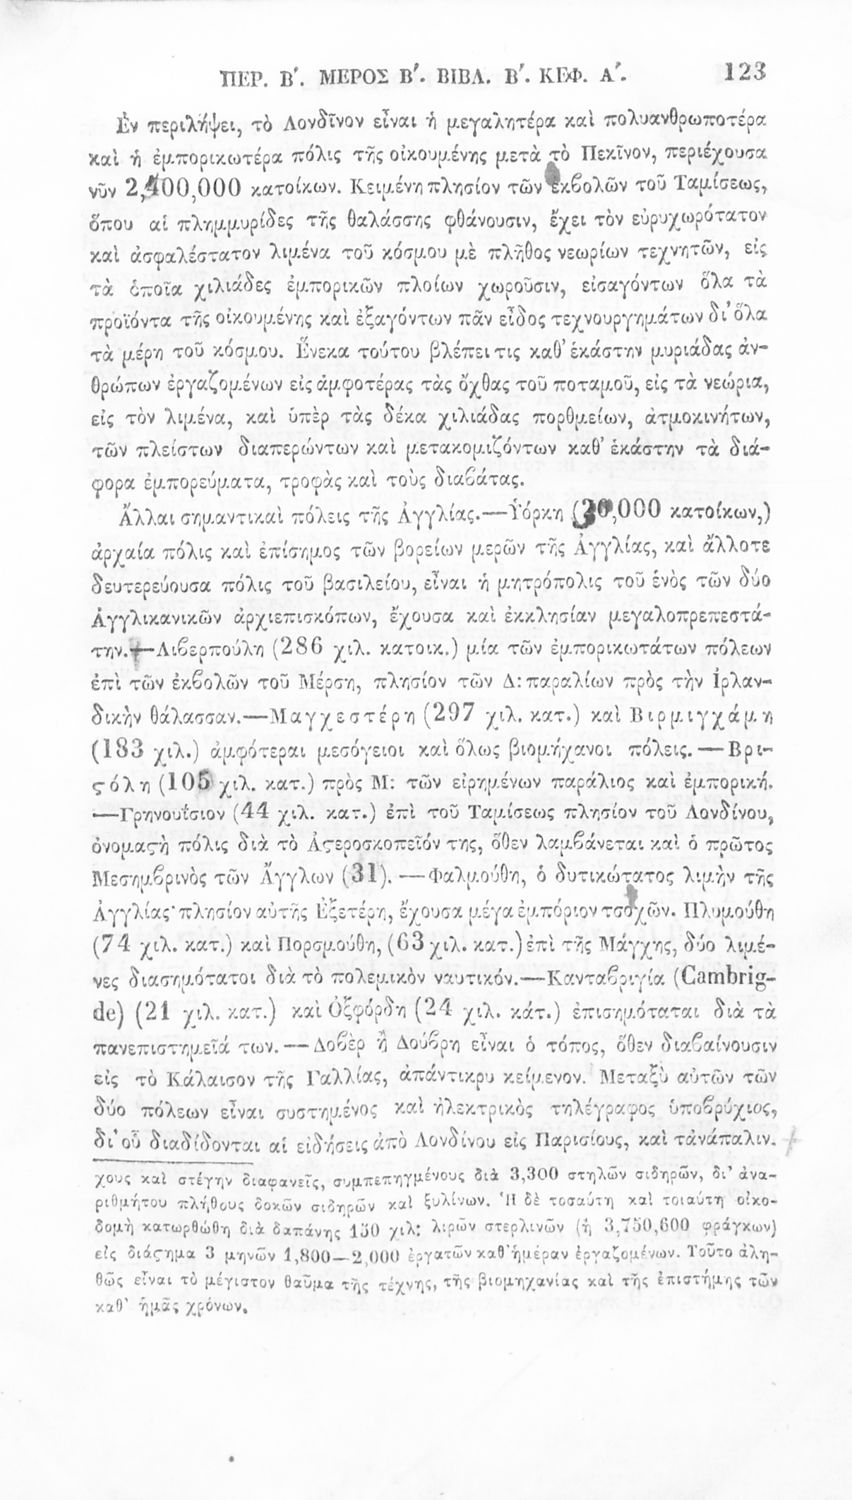 ΠΕΡ. Β΄. ΜΕΡΟΣ Β΄. ΒΙΒΛ. Β΄. ΚΕΦ. Α΄. 123
Ἐν περιλήψει, τὸ Λονδῖνον εἶναι ἡ μεγαλητέρα καὶ πολυανθρωποτέρα
καὶ ἡ ἐμπορικωτέρα πόλις τῆς οἰκουμένης μετὰ τὸ Πεκῖνον, περιέχουσα
νῦν 2,400,000 κατοίκων. Κειμένη πλησίον τῶν ἐκβολῶν τοῦ Ταμίσεως,
ὅπου αἱ πλημμυρίδες τῆς θαλάσσης φθάνουσιν, ἔχει τὸν εὐρυχωρότατον
καὶ ἀσφαλέστατον λιμένα τοῦ κόσμου μὲ πλῆθος νεωρίων τεχνητῶν, εἰς
τὰ ὁποῖα χιλιάδες ἐμπορικῶν πλοίων χωροῦσιν, εἰσαγόντων ὅλα τὰ
προϊόντα τῆς οἰκουμένης καὶ ἐξαγόντων πᾶν εἶδος τεχνουργημάτων δι᾽ ὅλα
τὰ μέρη τοῦ κόσμου. Ἕνεκα τούτου βλέπει τις καθ᾽ ἑκάστην μυριάδας ἀν-
θρώπων ἐργαζομένων εἰς ἀμφοτέρας τὰς ὄχθας τοῦ ποταμοῦ, εἰς τὰ νεώρια,
εἰς τὸν λιμένα, καὶ ὑπὲρ τὰς δέκα χιλιάδας πορθμείων, ἀτμοκινήτων,
τῶν πλείστων διαπερώντων καὶ μετακομιζόντων καθ᾽ ἑκάστην τὰ διά-
φορα ἐμπορεύματα, τροφὰς καὶ τοὺς διαβάτας.
Ἄλλαι σημαντικαὶ πόλεις τῆς Ἀγγλίας.—Ὑόρκη (30,000 κατοίκων,)
ἀρχαία πόλις καὶ ἐπίσημος τῶν βορείων μερῶν τῆς Ἀγγλίας, καὶ ἄλλοτε
δευτερεύουσα πόλις τοῦ βασιλείου, εἶναι ἡ μητρόπολις τοῦ ἑνὸς τῶν δύο
Ἀγγλικανικῶν ἀρχιεπισκόπων, ἔχουσα καὶ ἐκκλησίαν μεγαλοπρεπεστά-
την.—Λιβερπούλη (286 χιλ. κατοικ.) μία τῶν ἐμπορικωτάτων πόλεων
ἐπὶ τῶν ἐκβολῶν τοῦ Μέρση, πλησίον τῶν Δ: παραλίων πρὸς τὴν Ἰρλαν-
δικὴν θάλασσαν.—Μαγχεστέρη (297 χιλ. κατ.) καὶ Βιρμιγχάμη
(183 χιλ.) ἀμφότεραι μεσόγειοι καὶ ὅλως βιομήχανοι πόλεις.—Βρι-
ϛόλη (105 χιλ. κατ.) πρὸς Μ: τῶν εἰρημένων παράλιος καὶ ἐμπορική.
—Γρηνουΐσιον (44 χιλ. κατ.) ἐπὶ τοῦ Ταμίσεως πλησίον τοῦ Λονδίνου,
ὀνομαϛὴ πόλις διὰ τὸ Ἀϛεροσκοπεῖόν της, ὅθεν λαμβάνεται καὶ ὁ πρῶτος
Μεσημβρινὸς τῶν Ἄγγλων (31).—Φαλμούθη, ὁ δυτικώτατος λιμὴν τῆς
Ἀγγλίας· πλησίον αὐτῆς Ἐξετέρη, ἔχουσα μέγα ἐμπόριον τσοχῶν. Πλυμούθη
(74 χιλ. κατ.) καὶ Πορσμούθη, (63 χιλ. κατ.) ἐπὶ τῆς Μάγχης, δύο λιμέ-
νες διασημότατοι διὰ τὸ πολεμικὸν ναυτικόν.—Κανταβριγία (Cambrig-
de) (21 χιλ. κατ.) καὶ Ὀξφόρδη (24 χιλ. κάτ.) ἐπισημόταται διὰ τὰ
πανεπιστημεῖά των.—Δοβὲρ ἢ Δούβρη εἶναι ὁ τόπος, ὅθεν διαβαίνουσιν
εἰς τὸ Κάλαισον τῆς Γαλλίας, ἀπάντικρυ κείμενον. Μεταξὺ αὐτῶν τῶν
δύο πόλεων εἶναι συστημένος καὶ ἠλεκτρικὸς τηλέγραφος ὑποβρύχιος,
δι᾽ οὗ διαδίδονται αἱ εἰδήσεις ἀπὸ Λονδίνου εἰς Παρισίους, καὶ τἀνάπαλιν.
χους καὶ στέγην διαφανεῖς, συμπεπηγμένους διὰ 3,300 στηλῶν σιδηρῶν, δι᾽ ἀνα-
ριθμήτου πλήθους δοκῶν σιδηρῶν καὶ ξυλίνων. Ἡ δὲ τοσαύτη καὶ τοιαύτη οἰκο-
δομὴ κατωρθώθη διὰ δαπάνης 150 χιλ: λιρῶν στερλινῶν (ἢ 3,750,000 φράγκων)
εἰς διάϛημα 3 μηνῶν 1,800—2,000 ἐργατῶν καθ᾽ ἡμέραν ἐργαζομένων. Τοῦτο ἀλη-
θῶς εἶναι τὸ μέγιστον θαῦμα τῆς τέχνης, τῆς βιομηχανίας καὶ τῆς ἐπιστήμης τῶν
καθ᾽ ἡμᾶς χρόνων.